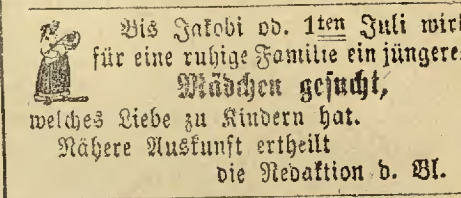 Bis Jakobi od. 1ten Juli wird
für eine ruhige Familie ein jüngeres
Mädchen gesucht,
welches Liebe zu Kindern hat.
Nähere Auskunft ertheilt
die Redaktion d. Bl.